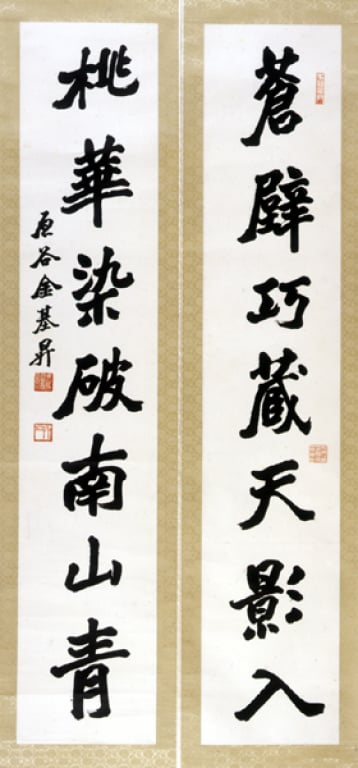 蒼壁巧蔵天影入
桃華染破南山青
原谷金基昇